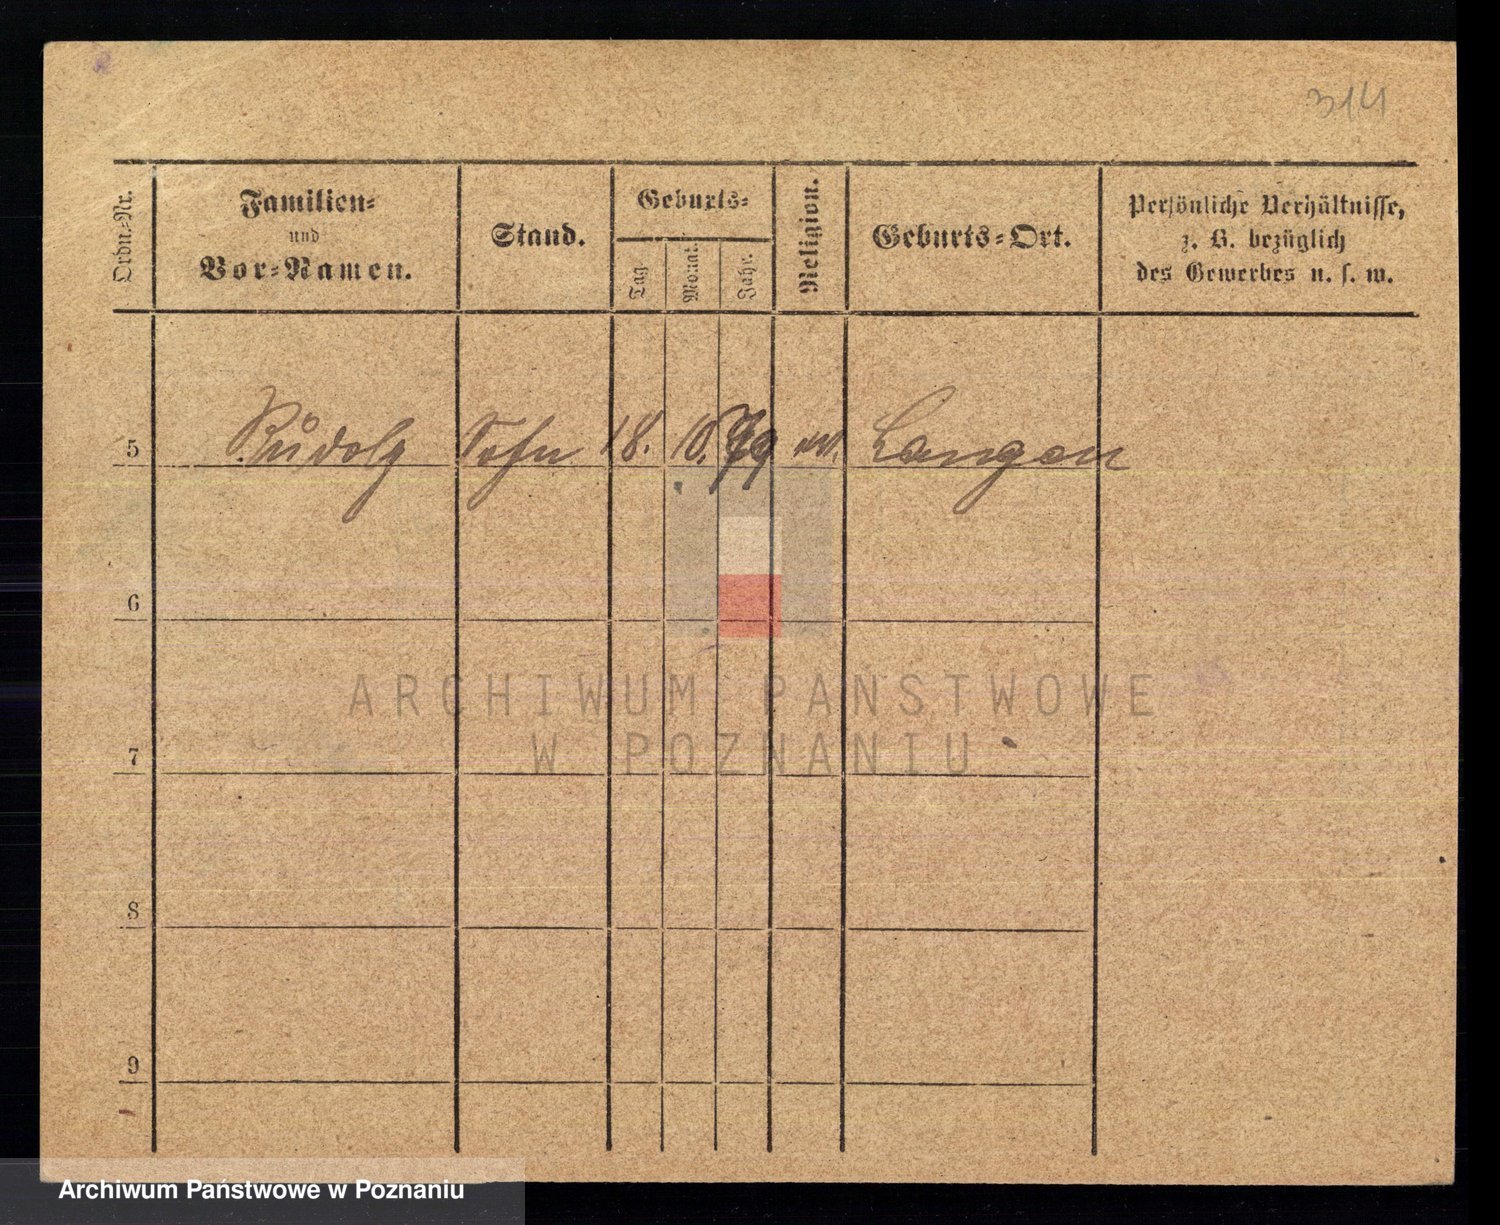 314
Ordn.-Nr.
Familien-
und
Vor-Namen.
Stand.
Geburts-
Tag
Monat.
Jahr.
Religion.
Geburts-Ort.
Persönliche Verhältnisse,
z. B. bezüglich
des Gewerbes u. s. w.
5 Rudolf Sohn 18. 10. 79 ev. Langen
6
7
8
9
ARCHIWUM PAŃSTWOWE
W POZNANIU
Archiwum Państwowe w Poznaniu